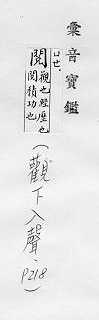 彙音寶鑑
ㄩㄝˋ
閱
觀也經歷也
閱積功也
(觀下入聲、P218)